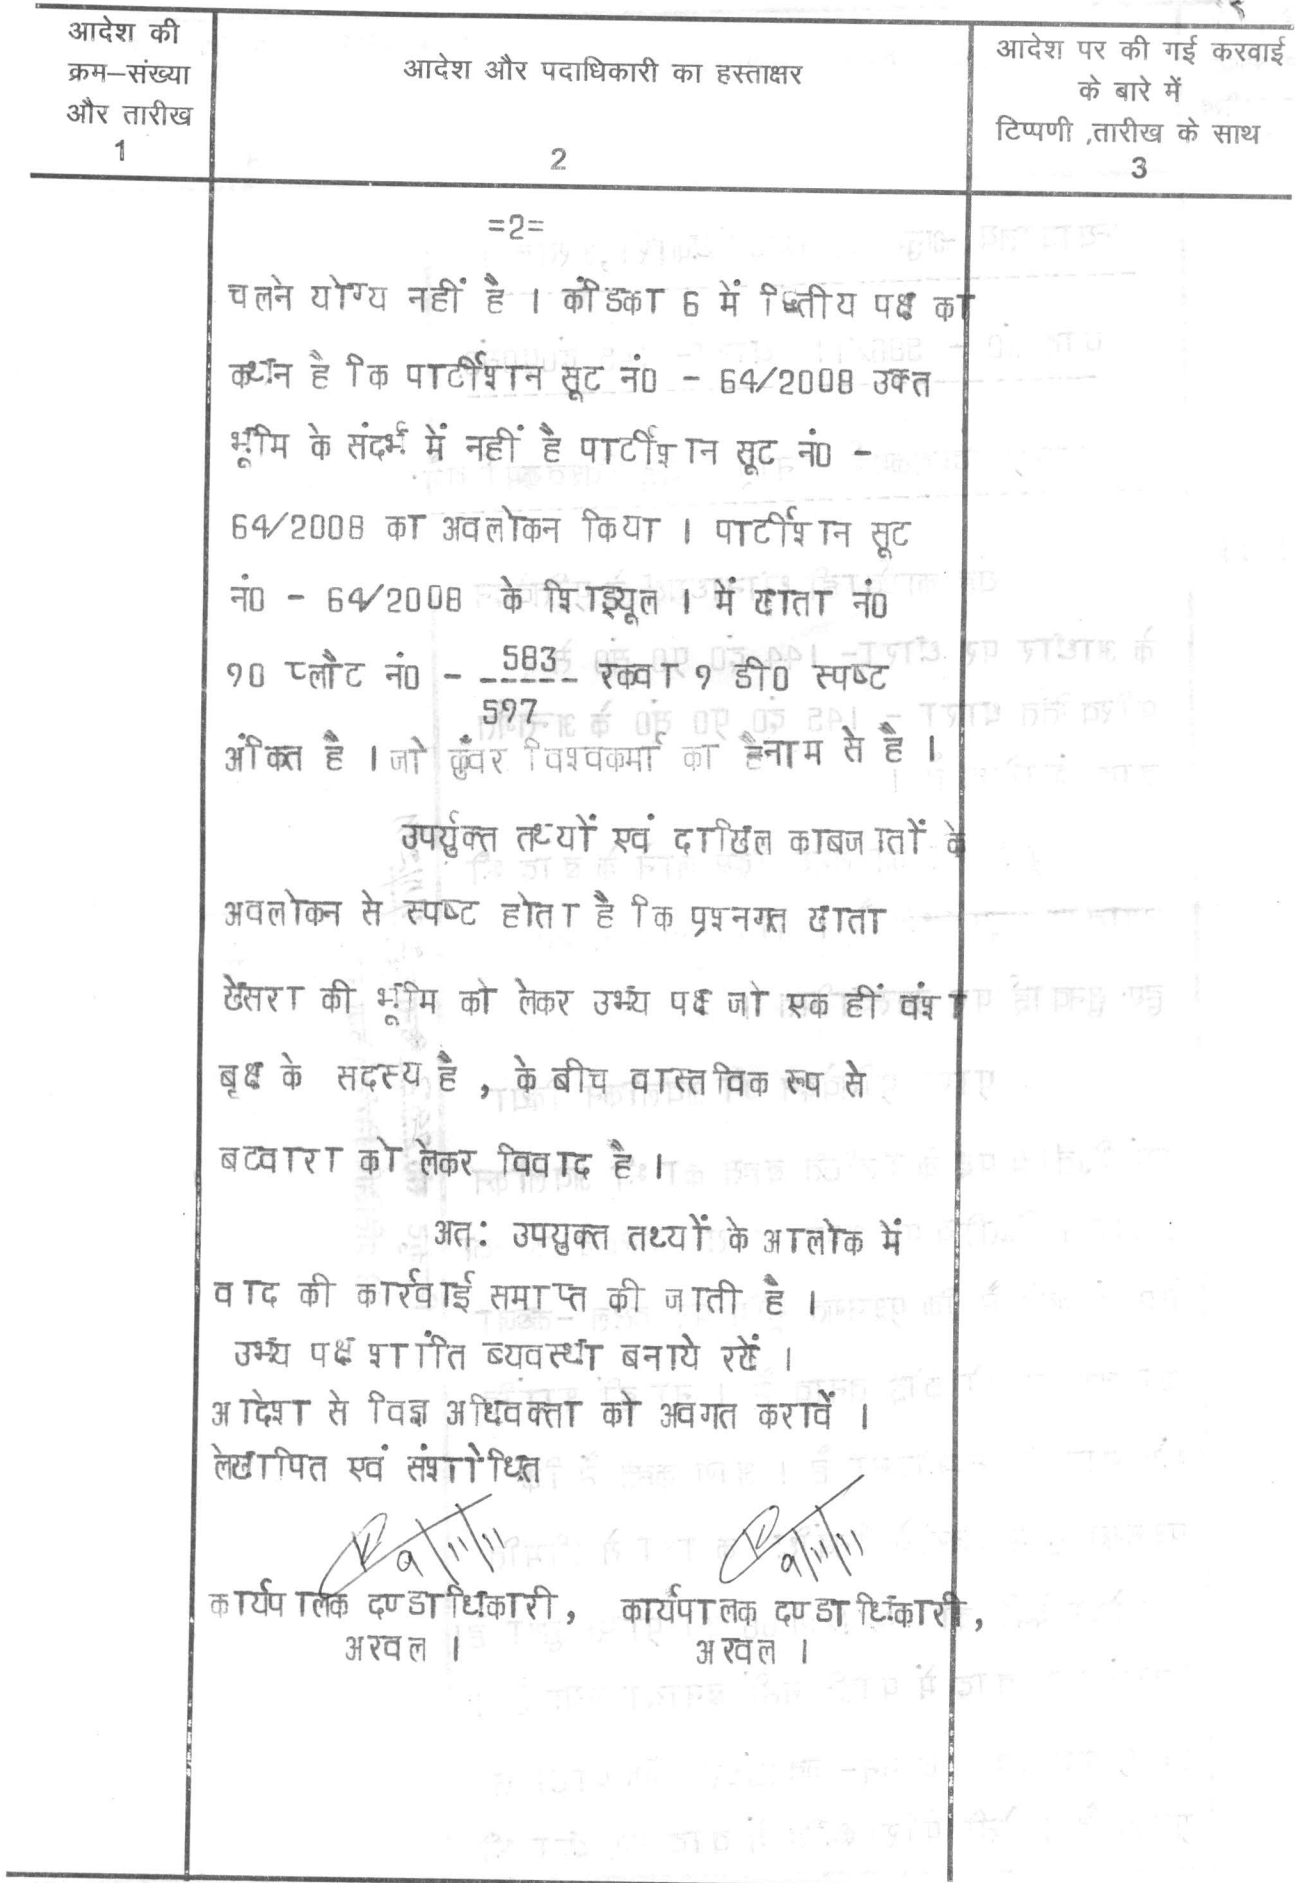 आदेश की
क्रम–संख्या
और तारीख
1
आदेश और पदाधिकारी का हस्ताक्षर
2
आदेश पर की गई करवाई
के बारे में
टिप्पणी ,तारीख के साथ
3
=2=
चलने योग्य नहीं है । कंडिका 6 में द्वितीय पक्ष का
कथन है कि पार्टीशान सूट नं0 - 64/2008 उक्त
भूमि के संदर्भ में नहीं है पार्टीशान सूट नं0 -
64/2008 का अवलोकन किया । पार्टीशान सूट
नं0 - 64/2008 के शिड्यूल । में खाता नं0
90 प्लौट नं0 - 583 रकवा 9 डी0 स्पष्ट
597
अंकित है । जो कुंवर विश्वकर्मा का है नाम से है ।
उपर्युक्त तथ्यों एवं दाखिल काबजातों के
अवलोकन से स्पष्ट होता है कि प्रश्नगत खाता
खेसरा की भूमि को लेकर उभय पक्ष जो एक हीं वंश
बृक्ष के सदस्य है , के बीच वास्तविक रूप से
बटवारा को लेकर विवाद है ।
अत: उपयुक्त तथ्यों के आलोक में
वाद की कार्रवाई समाप्त की जाती है ।
उभय पक्ष शांति ब्यवस्था बनाये रखें ।
आदेश से विज्ञ अधिवक्ता को अवगत करावें ।
लेखापित एवं संशोधित
9/11/11
9/11/11
कार्यपालक दण्डाधिकारी, कार्यपालक दण्डाधिकारी,
अरवल । अरवल ।